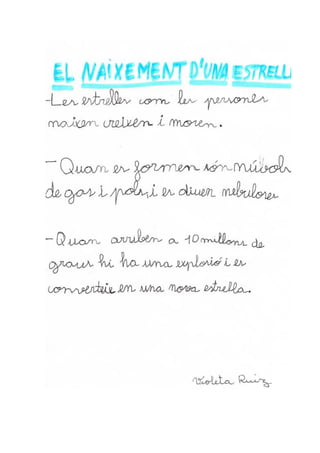 EL NAIXEMENT D'UNA ESTRELL
-Les estrelles com les persones
naixen creixen i moren.
-Quan es formen són núvols
de gas i pols, i es diuen nebuloses
-Quan arriben a 10 millons de
graus hi ha una explosió i es
converteix en una nova estrella.
Violeta Ruiz